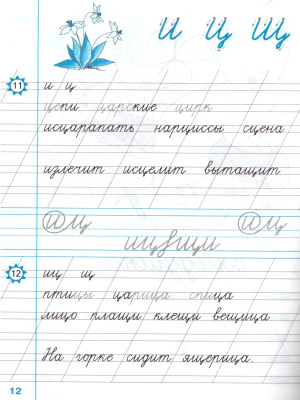 И Ц Щ
11
и ц
цепи царские цирк
исцарапать нарциссы сцена
излечит исцелит вытащит
@ц @ц
ищзищи
12
иц щ
птицы царица спица
лицо плащи клещи вещица
На горке сидит ящерица.
12